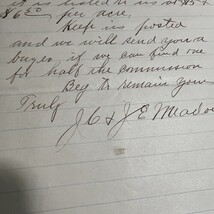 it is listed to us at $5 &
$6.50 per acre,
Keep us posted
and we will send you a
buyer, if we can find one
for half the commission
Beg to remain yours
Truly
J C & J E Meado